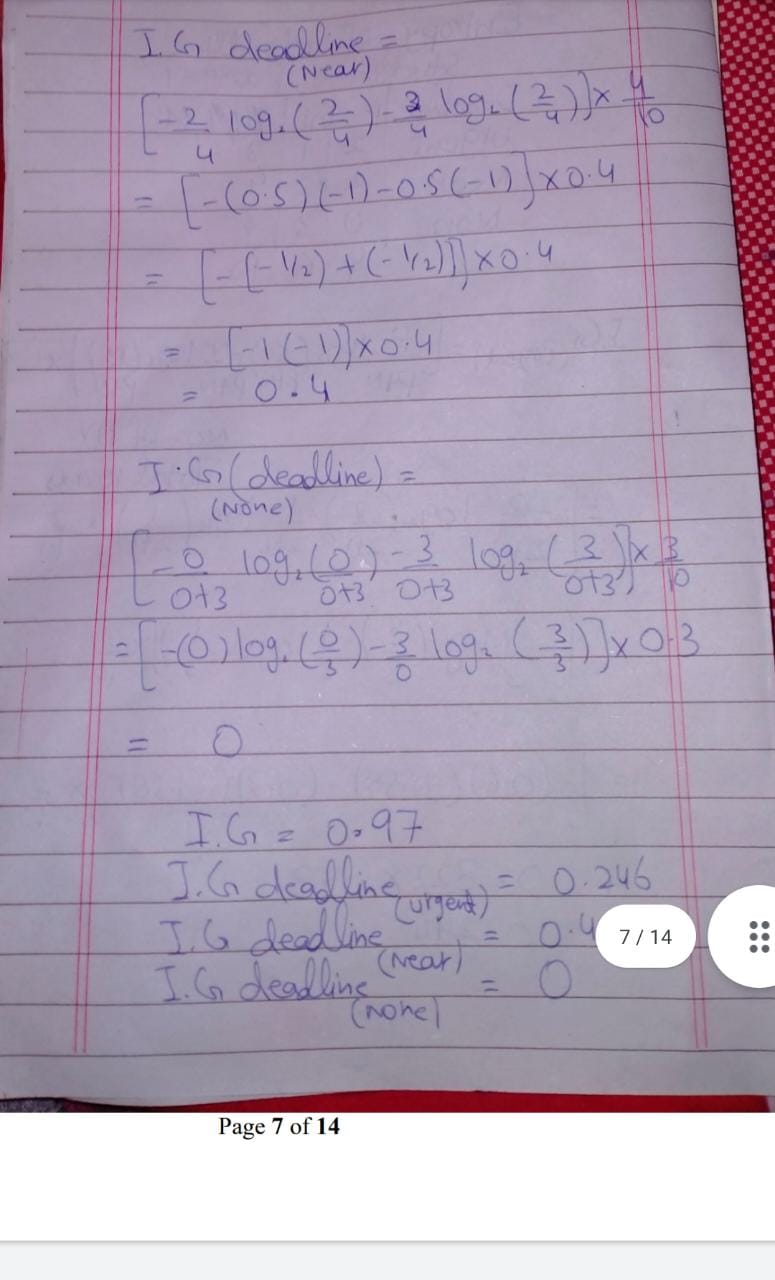 I.G deadline =
(Near)
[-2/4 log₂(2/4) - 2/4 log₂(2/4)] × 4/10
= [-(0.5)(-1)-0.5(-1)] × 0.4
= [-[-1/2) + (-1/2)]] × 0.4
= [-1(-1)] × 0.4
= 0.4
I.G (deadline) =
(None)
[-0/0+3 log₂(0/0+3) - 3/0+3 log₂(3/0+3)] × 3/10
= [-(0) log₂(0/3) - 3/0 log₂(3/3)] × 0.3
= 0
I.G = 0.97
I.G deadline (urgent) = 0.246
I.G deadline (Near) = 0.4
7 / 14
I.G deadline (none) = 0
Page 7 of 14